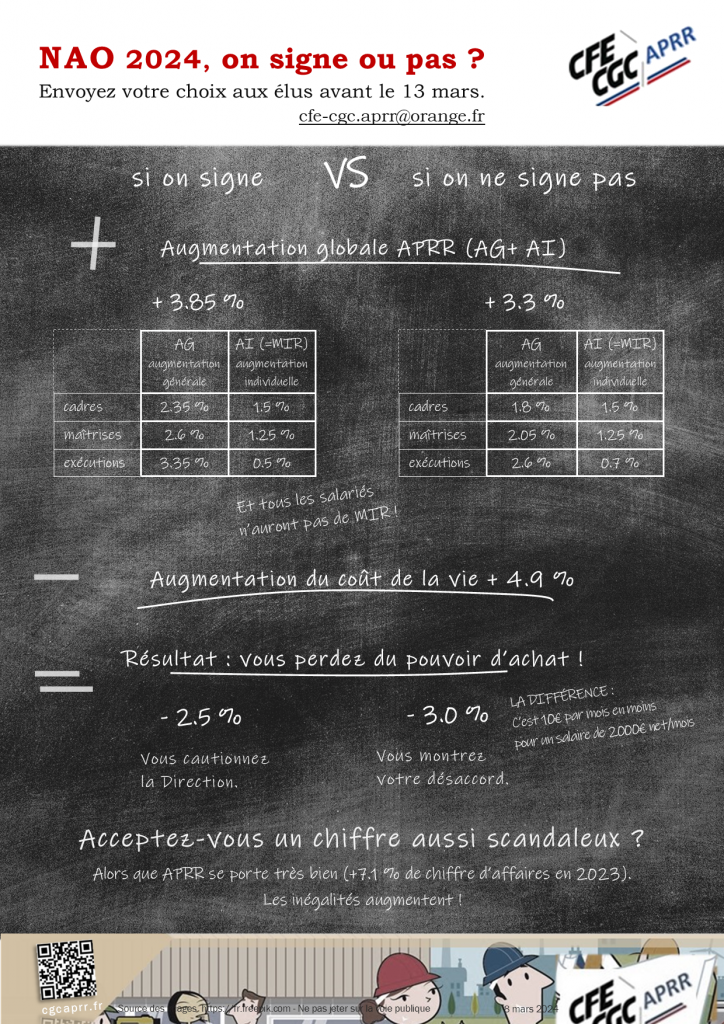 NAO 2024, on signe ou pas ?
Envoyez votre choix aux élus avant le 13 mars.
cfe-cgc.aprr@orange.fr
CFE
CGC APRR
si on signe VS si on ne signe pas
+ Augmentation globale APRR (AG+ AI)
+ 3.85 % + 3.3 %
AG AI (=MIR) AG AI (=MIR)
augmentation augmentation augmentation augmentation
générale individuelle générale individuelle
cadres 2.35 % 1.5 % cadres 1.8 % 1.5 %
maîtrises 2.6 % 1.25 % maîtrises 2.05 % 1.25 %
exécutions 3.35 % 0.5 % exécutions 2.6 % 0.7 %
Et tous les salariés
n'auront pas de MIR !
– Augmentation du coût de la vie + 4.9 %
= Résultat : vous perdez du pouvoir d'achat !
- 2.5 % - 3.0 %
LA DIFFÉRENCE :
C'est 10€ par mois en moins
pour un salaire de 2000€ net/mois
Vous cautionnez
la Direction.
Vous montrez
votre désaccord.
Acceptez-vous un chiffre aussi scandaleux ?
Alors que APRR se porte très bien (+7.1 % de chiffre d'affaires en 2023).
Les inégalités augmentent !
cgcaprr.fr
Source des images https://fr.freepik.com - Ne pas jeter sur la voie publique
8 mars 2024
CFE
CGC APRR